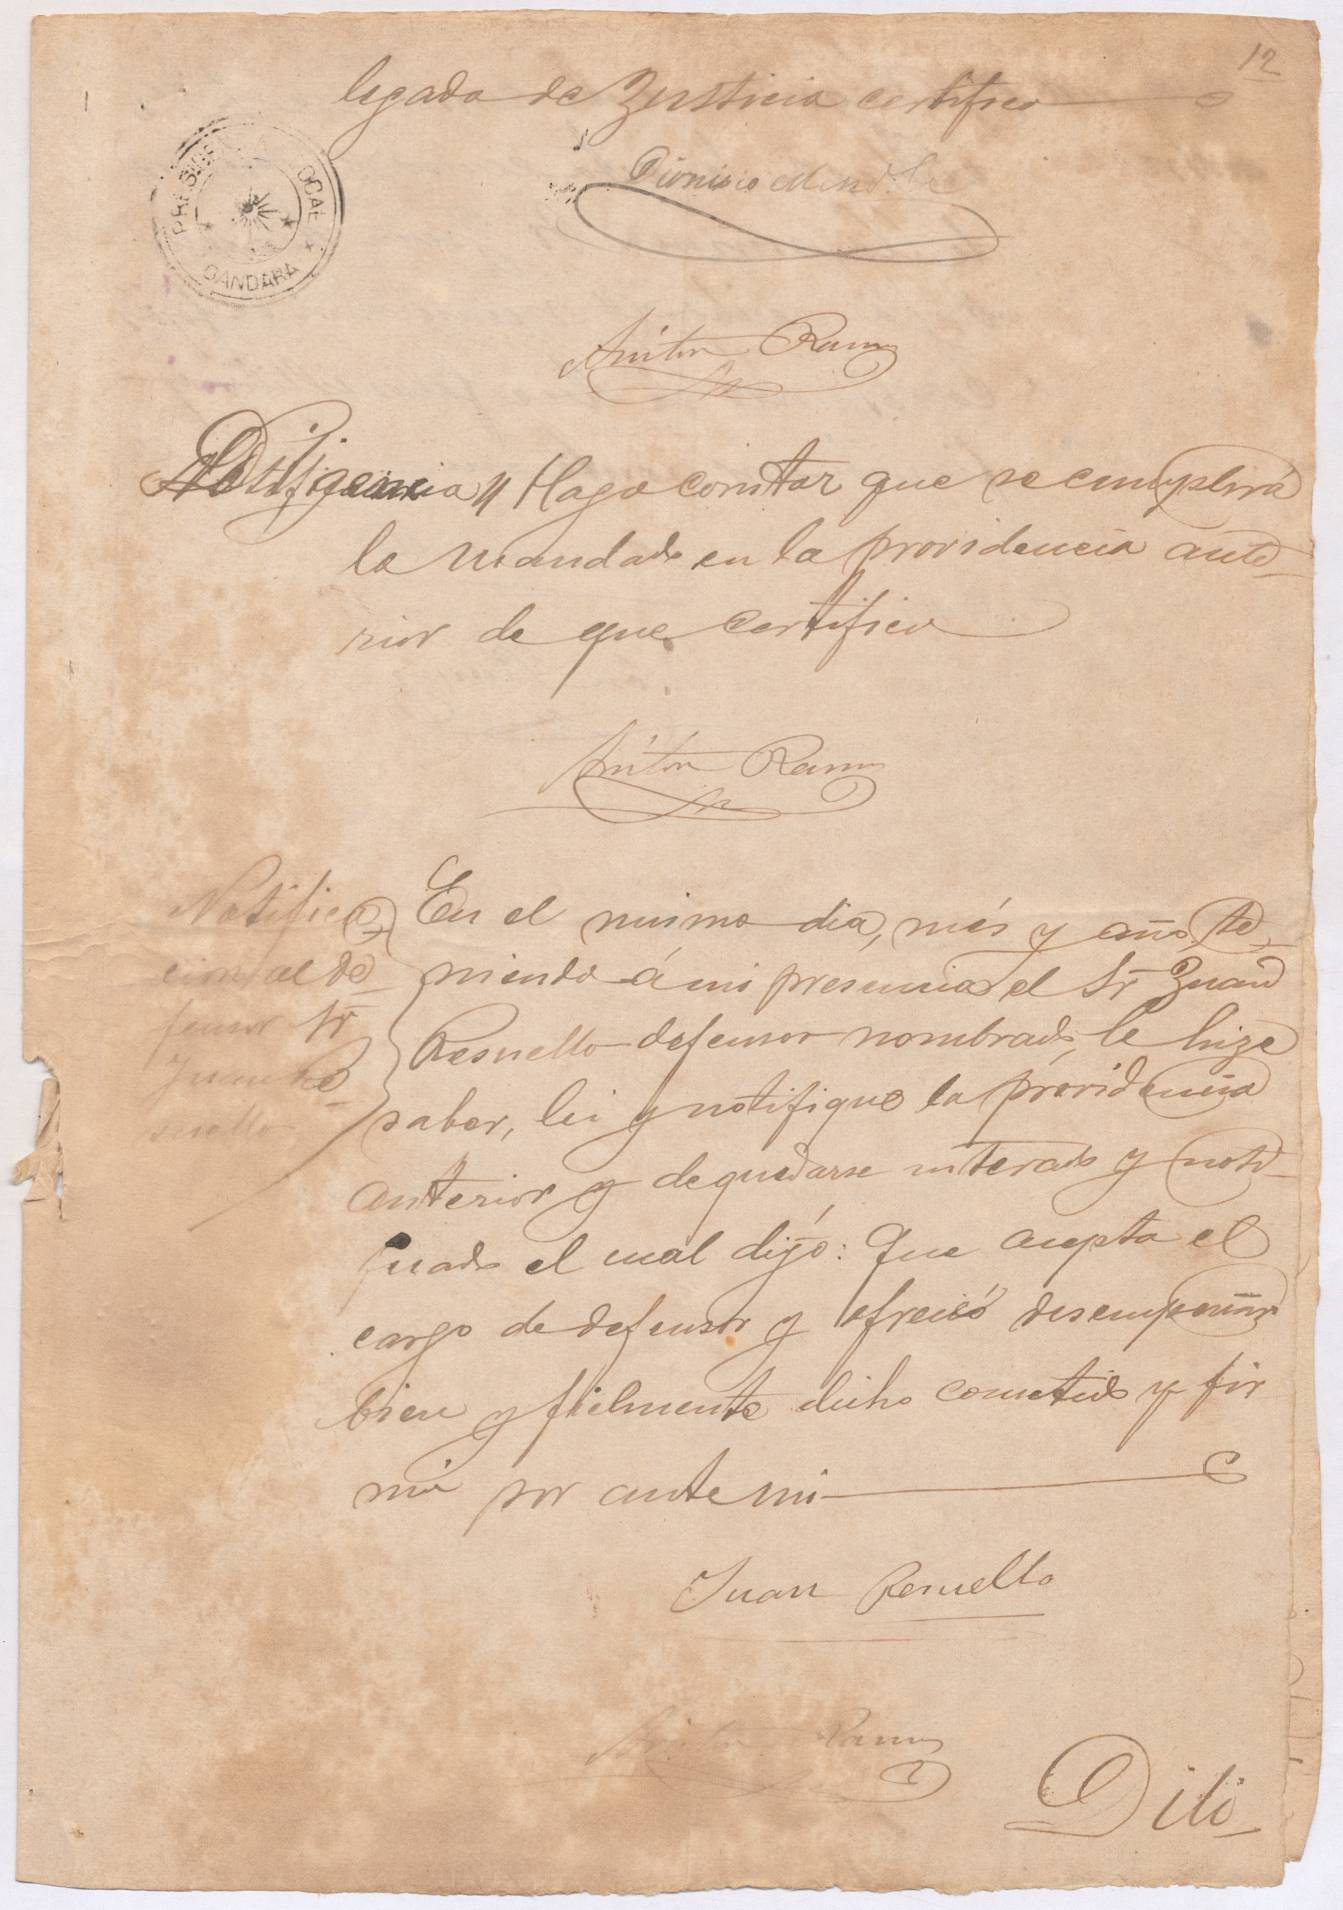 12
legado de Justicia certifico
PRESIDE OCAL
GANDARA
Dionisio
Ramos
Diligencia // Hago constar que se cumplirá
lo mandado en la providencia ante-
rior de que certifico
Ramos
Notifica-
cion al de-
fensor Sr
Juan Re-
suello
En el mismo dia, més y año te-
niendo á mi presencia el Sr Juan
Resuello defensor nombrado, le hize
saber, lei y notifique la providencia
anterior y de quedarse interado y noti-
fuado el cual dijó: Que acepta el
cargo de defensor y ofreició desempeñar
bien y fielmente dicho cometido y fir
má por ante mi
Juan Resuello
Ramos
Dili-